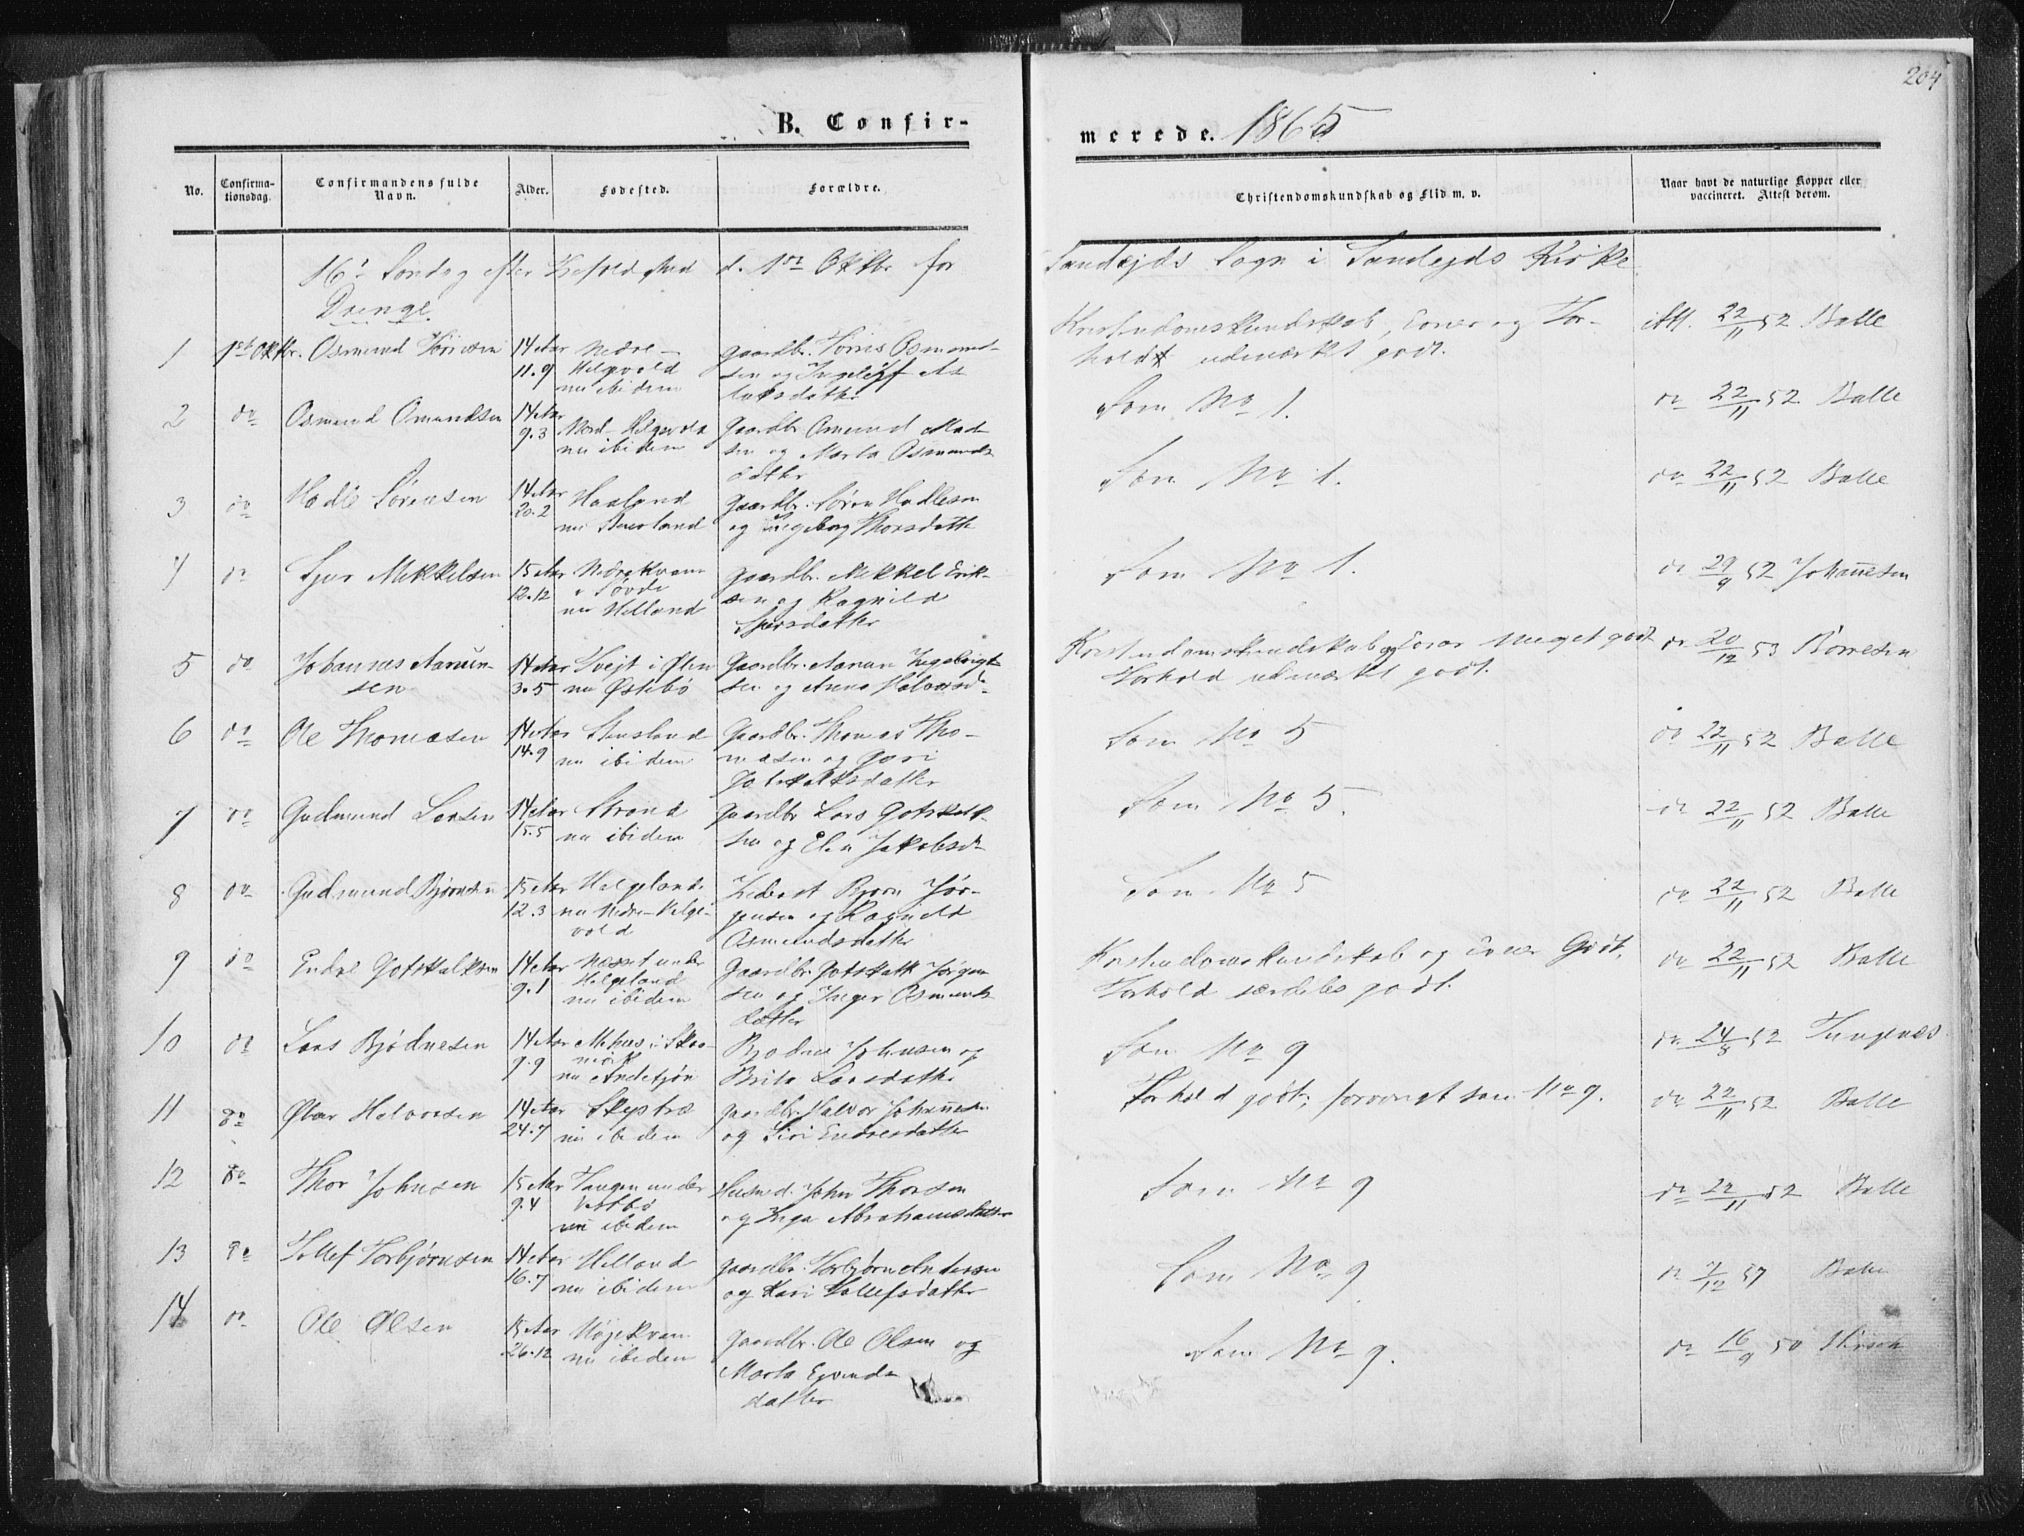 204
B. Confir-
merede. 1865
No.
Confirma-
tionsdag.
Confirmandens fulde
Navn.
Alder.
Fødested.
Forældre.
Christendomskundskab og Flid m. v.
Naar havt de naturlige Kopper eller
vaccineret. Attest derom.
16de Søndag efter Trefoldighed d. 1ste Oktbr. for Sandejds Sogn i Sandejds Kirke
Drenge.
1 1ste Oktbr. Osmund 14 Aar Nedre- Gaardbr. Osmund- Kristendomskundskab, Evner og For- Att. 22/11 52 Balle
11.9 Helgevold sen og As-
nu ibidem laksdatter
hold udmærket godt.
2 do Osmund Omundsen 14 Aar Gaardbr. Omund Mad- Som No 1. do 22/11 52 Balle
9.3 Nord-Helgevold sen og Marta Osmunds-
nu ibidem datter
3 do Hadle Sørensen 14 Aar Haaland Gaardbr. Søren Hadlesen Som No 1. do 22/11 52 Balle
20.2 nu og Ingeborg Thorsdatter
4 do Sjur Mikkelsen 15 Aar Nedrekvam Gaardbr. Mikkel Erik- Som No 1. do 29/9 52 Johannesen
12.12 i Søvde sen og Ragnild
nu Helland Sjursdatter
5 do Johannes Aanen- 14 Aar i Ølen Gaardbr. Aanen Ingebrigt- Kristendomskundskab og Evner meget godt do 20/12 53 Børresen
sen 3.5 nu Østebø sen og Anna Halvorsd.
Forhold udmærket godt.
6 do Ole Thomasen 14 Aar Stensland Gaardbr. Thomas Tho- Som No 5 do 22/11 52 Balle
14.9 nu ibidem masen og Guri
Gotskalksdatter
7 do Gudmund Larsen 14 Aar Strand Gaardbr. Lars Gotskalk- Som No 5. do 22/11 52 Balle
15.5 nu ibidem sen og Elen Jakobsd.
8 do Gudmund Bjørnsen 15 Aar Helgeland Bjørn Jør- Som No 5 do 22/11 52 Balle
12.3 nu Nedre-Helge- gensen og Ragnild
vold Osmundsdatter
9 do Endre Gotskalksen 14 Aar Næsset under Gaardbr. Gotskalk Jørgen- Kristendomskundskab og Evner Godt, do 22/11 52 Balle
9.1 Helgeland sen og Inger Osmunds-
nu ibidem datter
Forhold særdeles godt.
10 do Lars Bjødnesen 14 Aar Mehus i Skaa- Bjødne Johnsen og Som No 9 do 24/8 52 Tungenæs
9.9 nevik Brita Larsdatter
nu
11 do Halvorsen 14 Aar Gaardbr. Halvor Johannesen Forhold godt; forøvrigt som No 9. do 22/11 52 Balle
24.7 nu ibidem og Siri Endresdatter
12 do Thor Johnsen 15 Aar Tangen under Husmd. John Thorsen Som No 9 do 22/11 52 Balle
9.4 Vestbø og Inga Abrahamsdatter
nu ibidem
13 do Tollef Torbjørnsen 14 Aar Helland Gaardbr. Torbjørn Andersen Som No 9 do 7/12 57 Balle
16.7 nu ibidem og Kari Tollefsdatter
14 do Ole Olsen 15 Aar Høiekvam Gaardbr. Ole Olsen og Som No 9. do 16/9 50
26.12 nu ibidem Marta Ejvinds-
datter